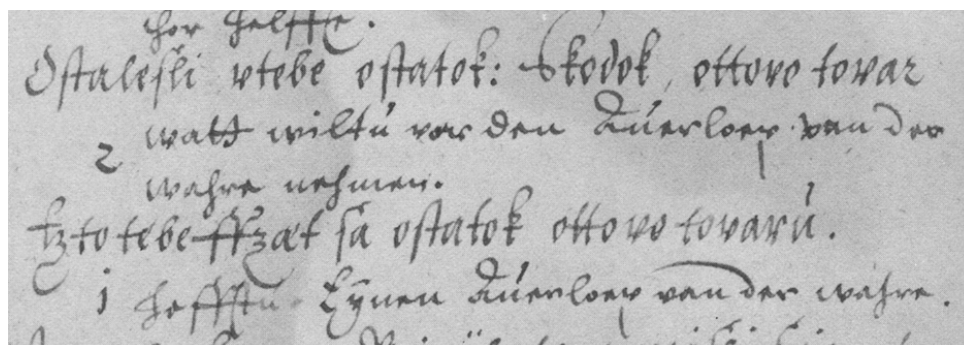 hor helffe.
Ostalesli vtebe ostatok: Skodok, ottovo tovar
2 watt wiltu vor den Auerloep van der
wahre nehmen.
tzto tebe ffzæt sa ostatok ottovo tovarú.
1 heffstu Eÿnen Auerloep van der wahre.